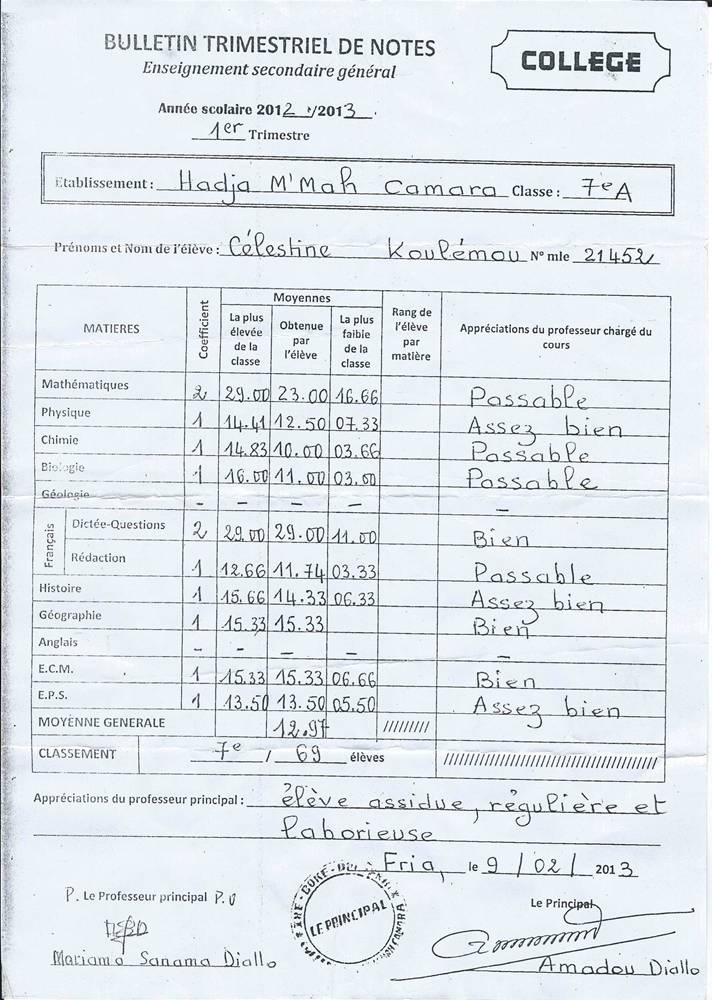 BULLETIN TRIMESTRIEL DE NOTES
Enseignement secondaire général
COLLEGE
Année scolaire 2012 /2013.
1er Trimestre
Etablissement: Hadja M'Mah Camara Classe: 7e A
Prénoms et Nom de l'élève: Célestine Koulémou N° mle 21452
MATIERES Coefficient Moyennes Rang de l'élève par matière Appréciations du professeur chargé du cours
La plus élevée de la classe Obtenue par l'élève La plus faible de la classe
Mathématiques 2 29.00 23.00 16.66 Passable
Physique 1 14.41 12.50 07.33 Assez bien
Chimie 1 14.83 10.00 03.66 Passable
Biologie 1 16.00 11.00 03.00 Passable
Géologie – – – – –
Français
Dictée-Questions 2 29.00 29.00 11.00 Bien
Rédaction 1 12.66 11.74 03.33 Passable
Histoire 1 15.66 14.33 06.33 Assez bien
Géographie 1 15.33 15.33 Bien
Anglais – – – – –
E.C.M. 1 15.33 15.33 06.66 Bien
E.P.S. 1 13.50 13.50 05.50 Assez bien
MOYENNE GENERALE 12.97 /////////
CLASSEMENT 7e / 69 élèves
Appréciations du professeur principal: élève assidue, régulière et
laborieuse
Fria, le 9 / 02 / 2013
P. Le Professeur principal P.O
Le Principal
LE PRINCIPAL
Mariama Sanama Diallo
Amadou Diallo